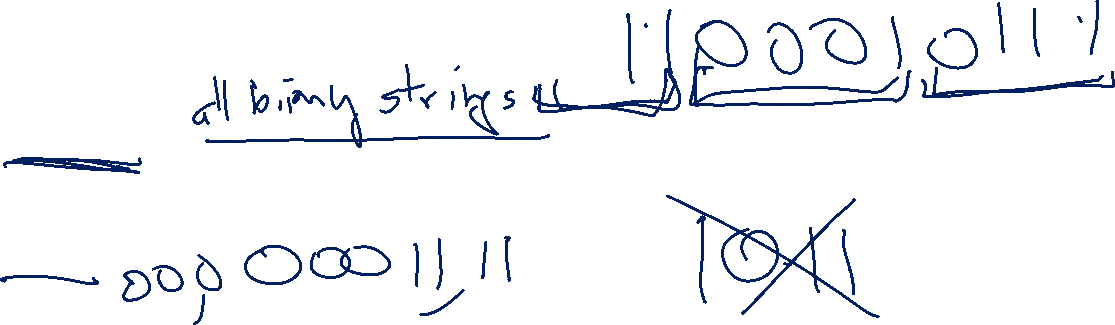 all binary strings 11 0001 0111
000 000 11 11 1011